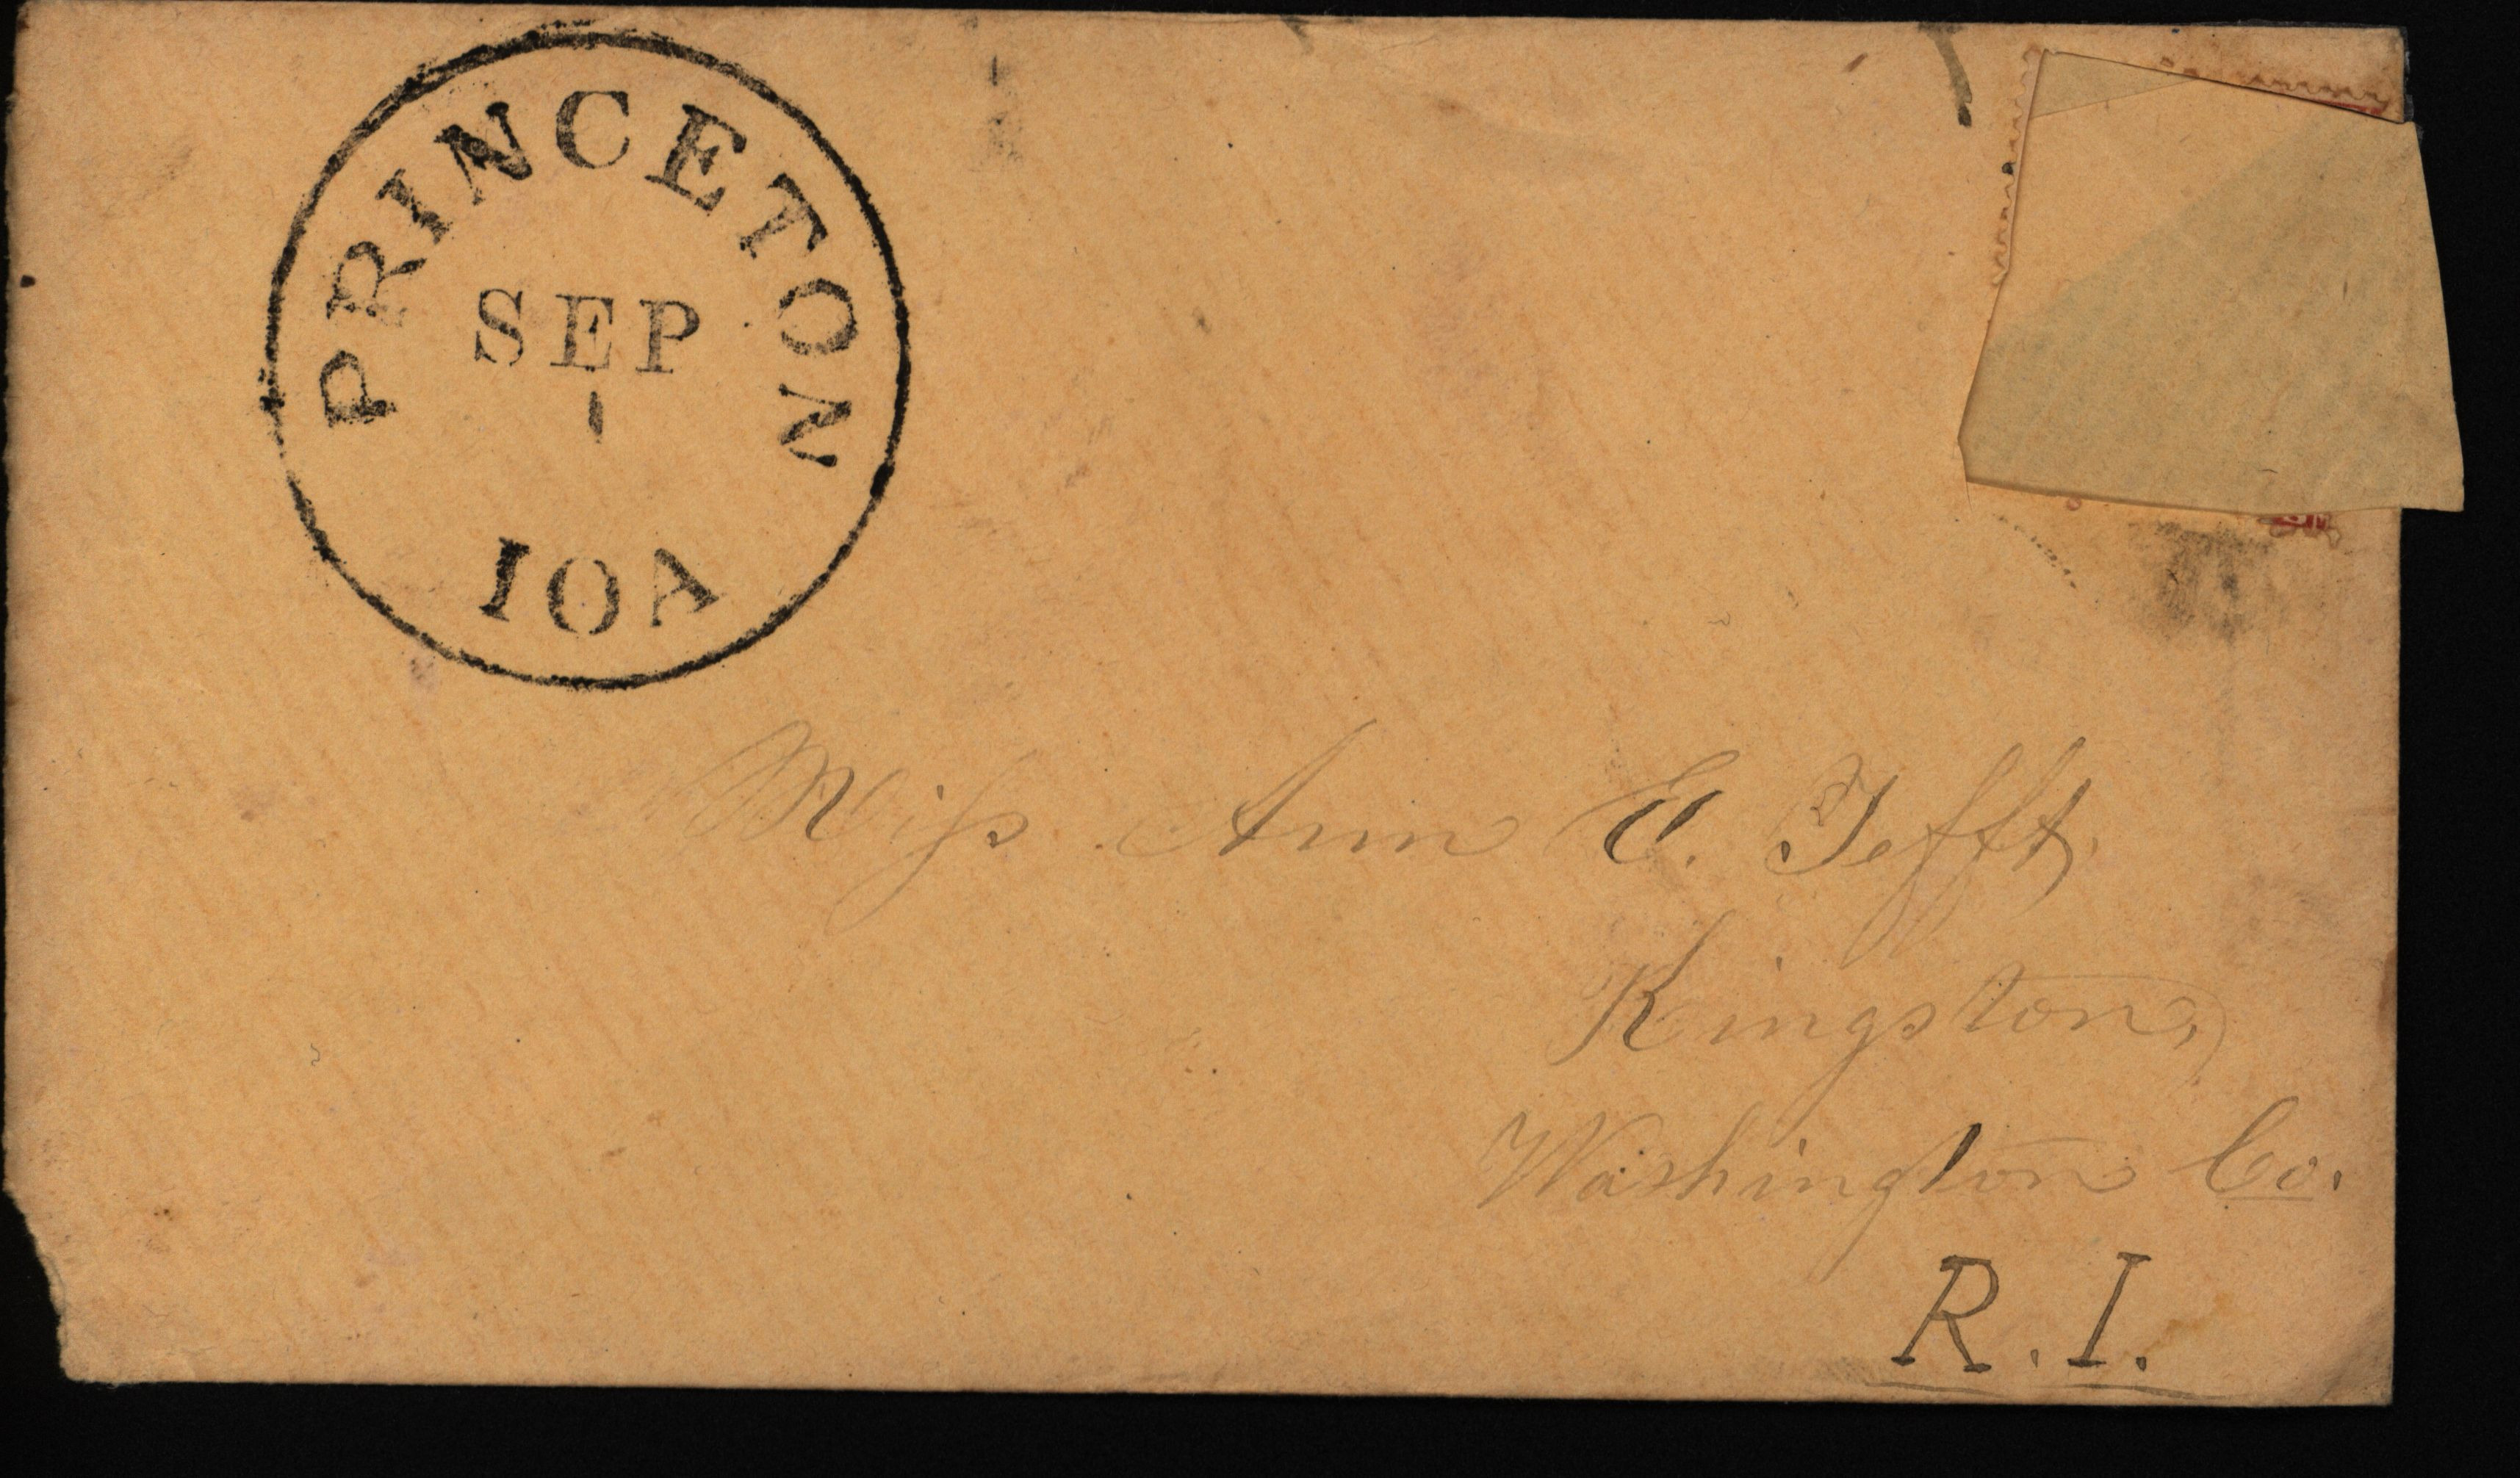 PRINCETON
SEP
1
IOA
Miss Ann E. Tefft,
Kingston,
Washington Co.
R.I.